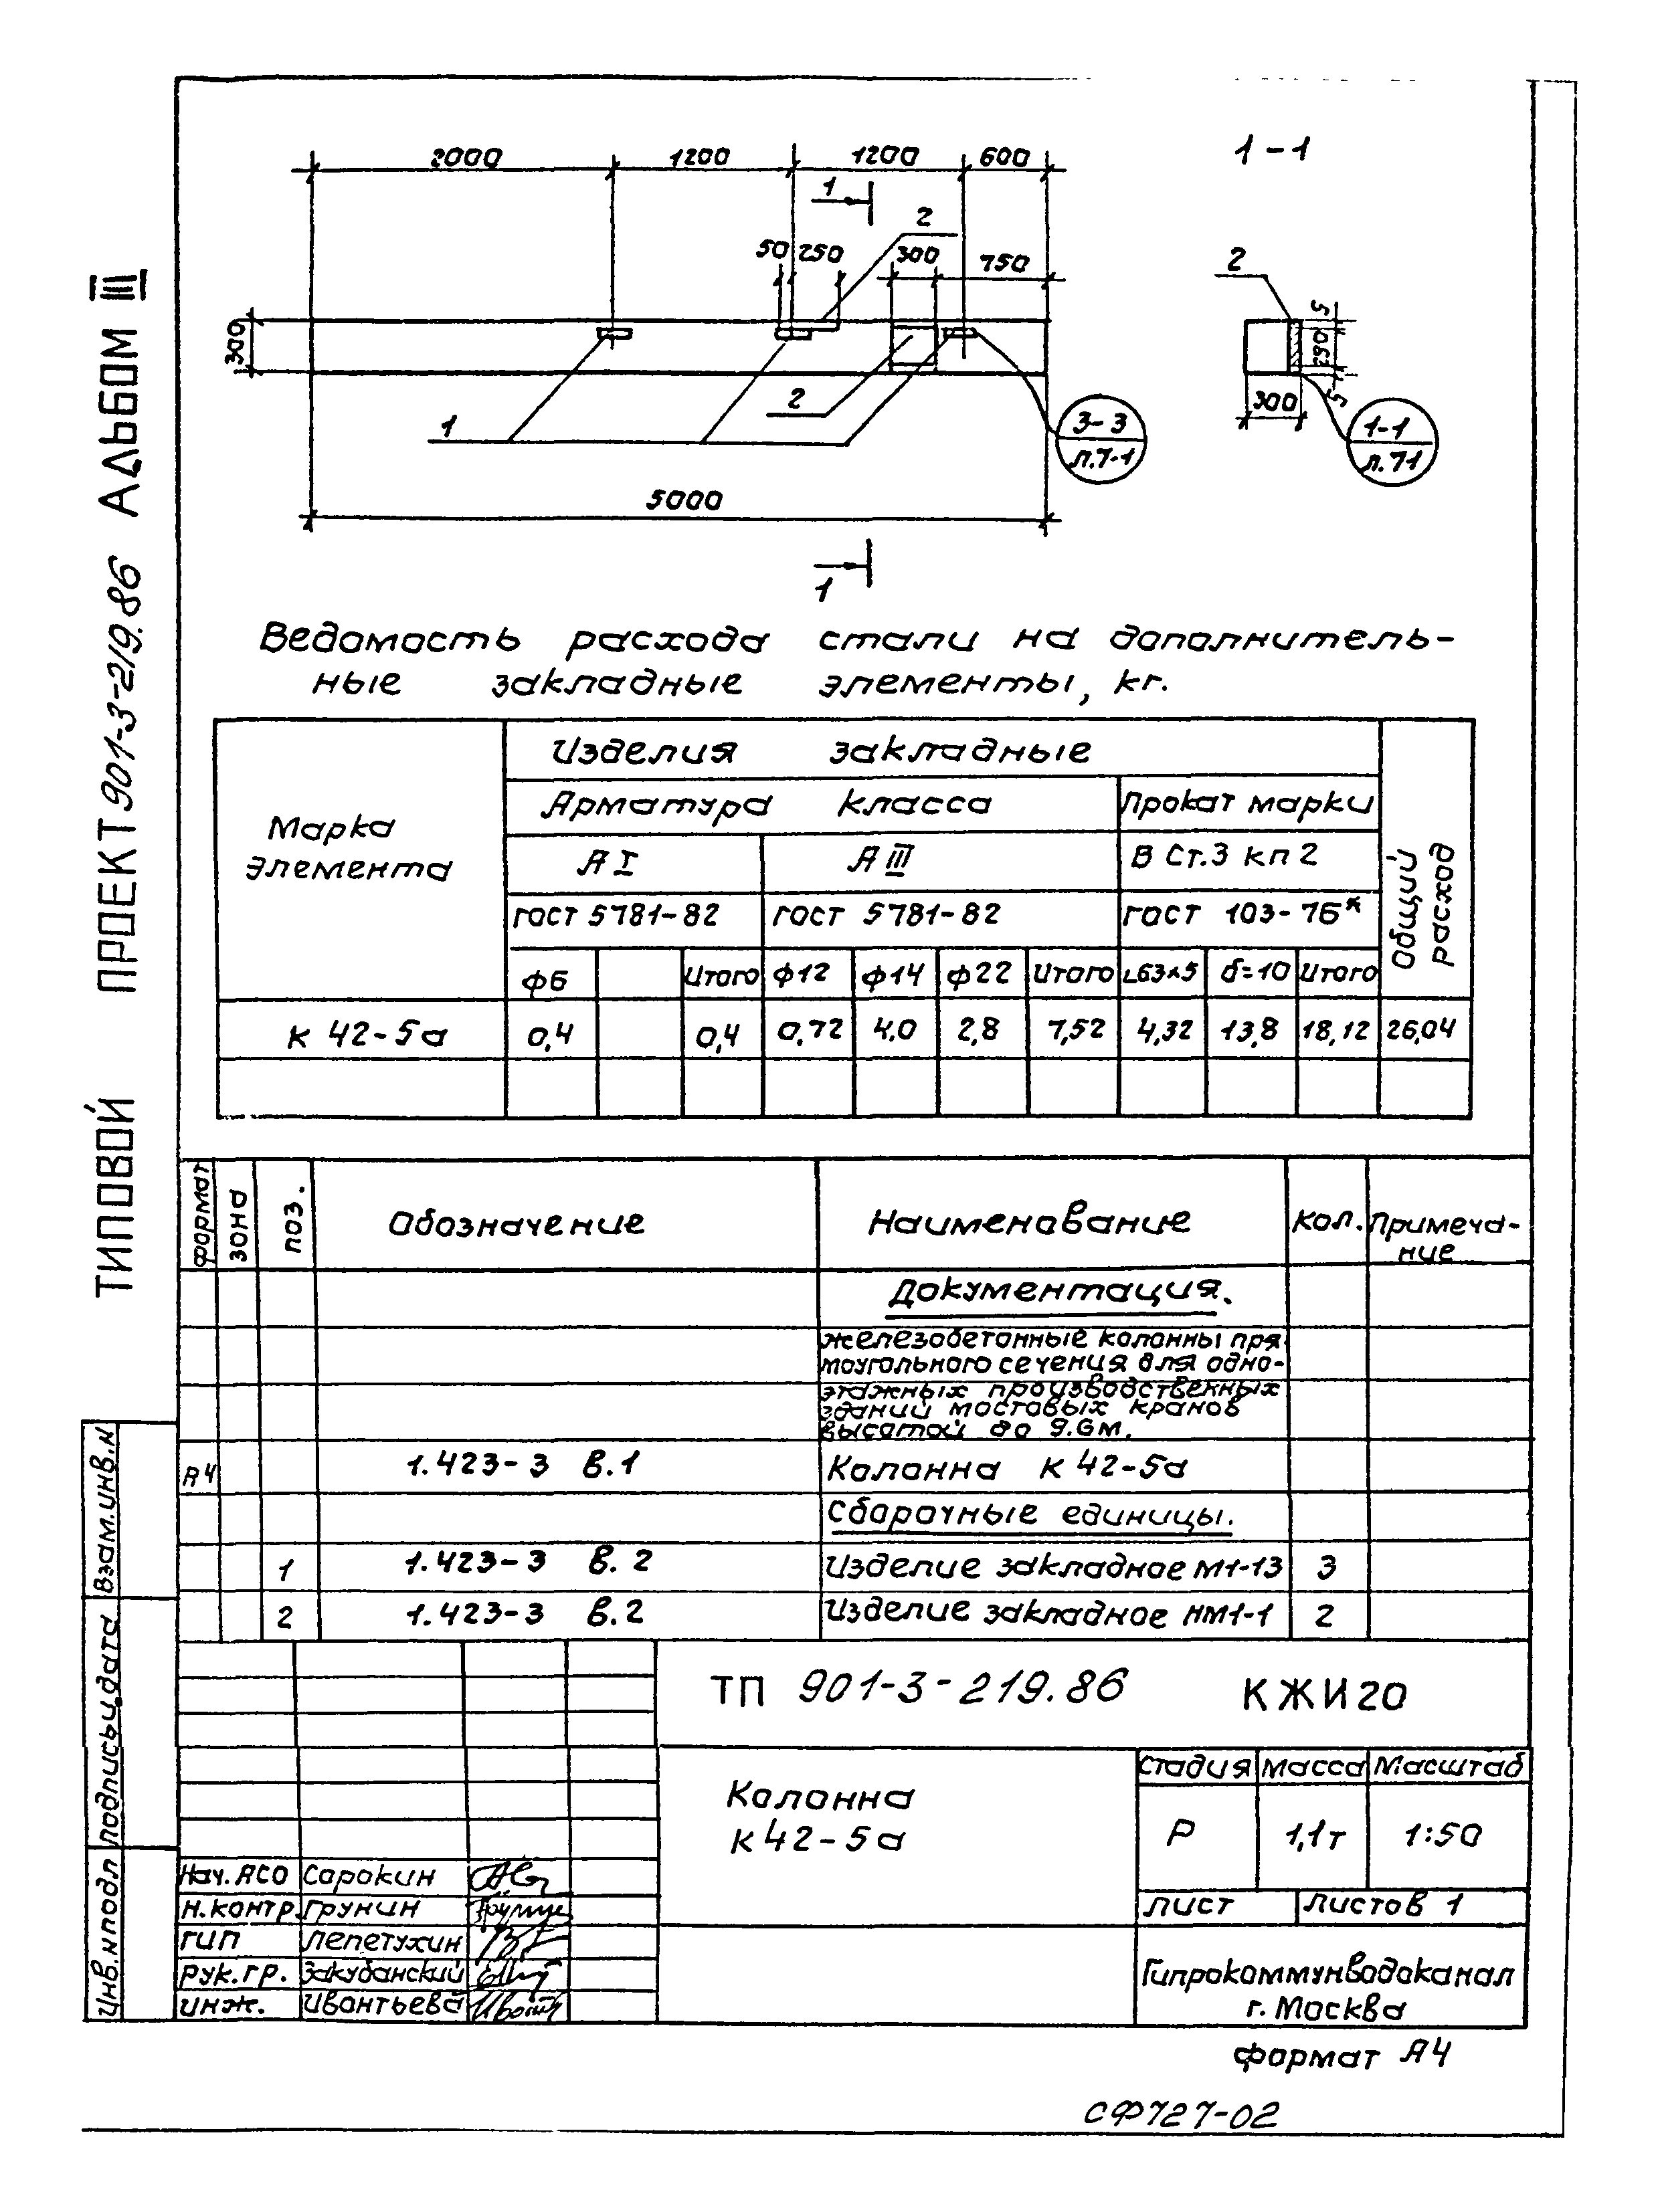 ТИПОВОЙ ПРОЕКТ 901-3-219.86 АЛЬБОМ III
2000 1200 1200 600
1-1
1
2
50 250 300 750
2
300
5
290
5
2
300
1
3-3
л.7-1
1-1
л.71
5000
1
Ведомость расхода стали на дополнитель-
ные закладные элементы, кг.
Марка
элемента
Изделия закладные
Общий
расход
Арматура класса
Прокат марки
А I
А III
В Ст.3 кп 2
ГОСТ 5781-82
ГОСТ 5781-82
ГОСТ 103-76*
ф6 Итого ф12 ф14 ф22 Итого L63×5 δ=10 Итого
К 42-5а 0,4 0,4 0,72 4.0 2,8 7,52 4,32 13,8 18,12 26,04
формат зона поз. Обозначение Наименование Кол. Примеча-
ние
Документация.
железобетонные колонны пря-
моугольного сечения для одно-
этажных производственных
зданий мостовых кранов
высотой до 9.6м.
А4 1.423-3 В.1 Колонна К 42-5а
Сборочные единицы.
1 1.423-3 В.2 Изделие закладное М1-13 3
2 1.423-3 В.2 Изделие закладное НМ1-1 2
Взам.инв.N
подпись и дата
Инв.Nподл
ТП 901-3-219.86 КЖИ20
Колонна
К42-5а
Стадия Масса Масштаб
Р 1,1т 1:50
Лист Листов 1
Нач. АСО Сорокин
Н.контр. Грунин
ГИП Лепетухин
Рук.гр. Закубанский
Инж. Ивонтьева
Гипрокоммунводоканал
г. Москва
формат А4
СФ727-02